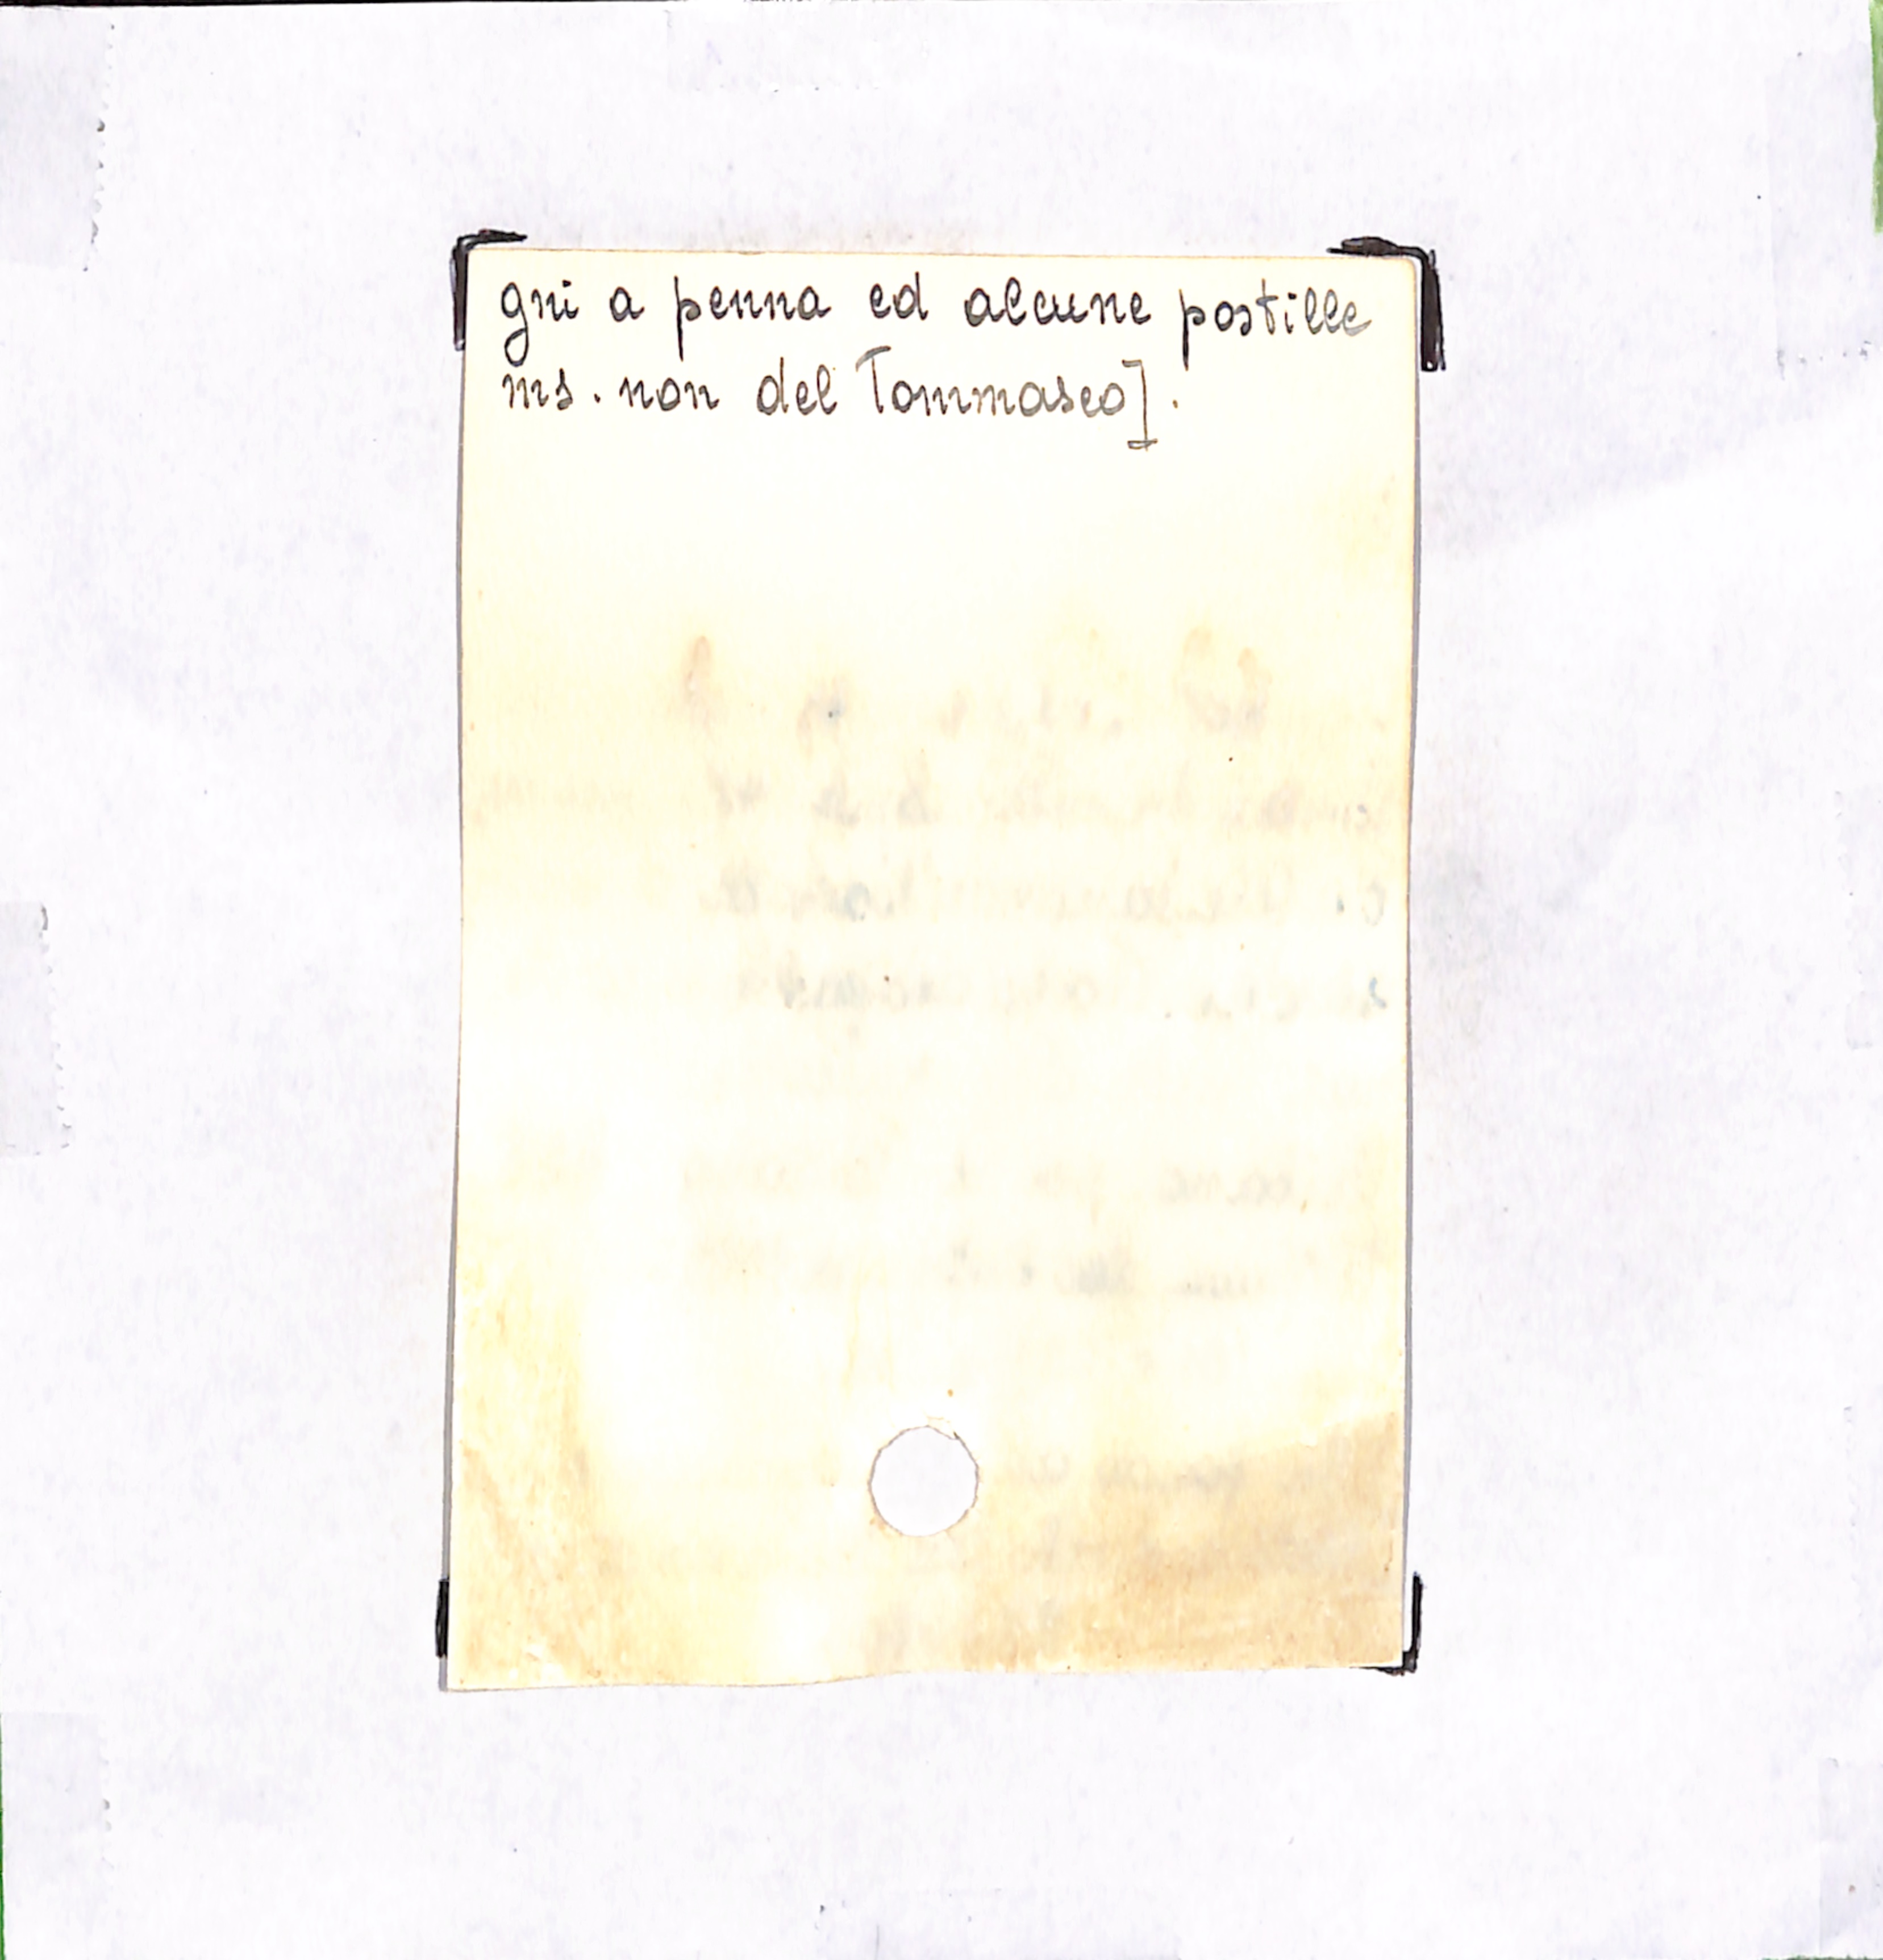 gni a penna ed alcune postille
ms. non del Tommaseo].